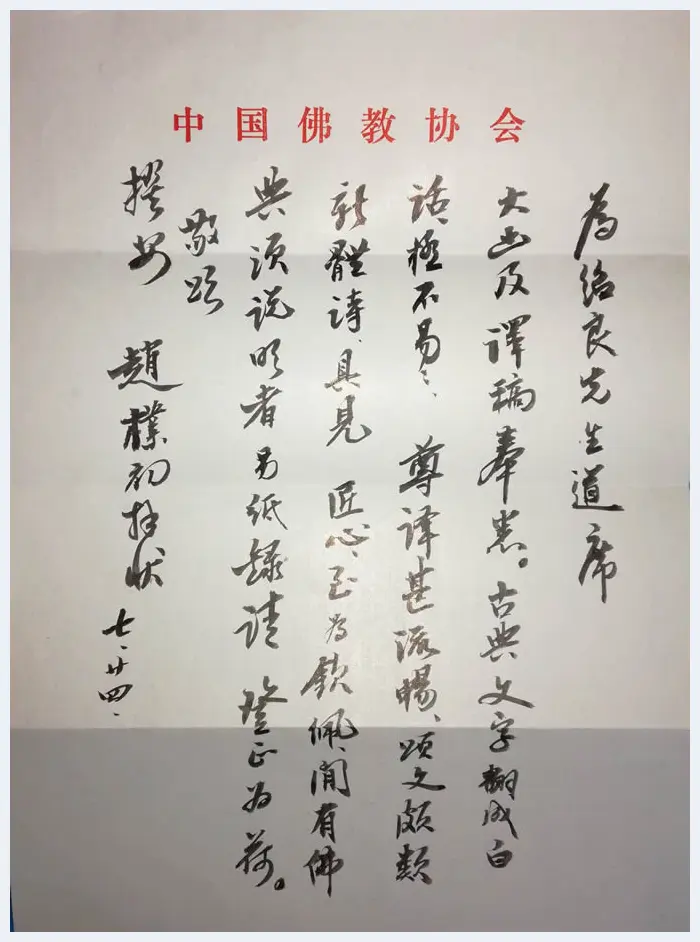 中国佛教协会
为绍良先生道席
大函及译稿奉悉。古典文字翻成白
话,极不易易、尊译甚流暢、颂文颇類
新體诗、具见匠心、至为钦佩,间有佛
典须说明者另纸録请鉴正为荷。
敬颂
撰安 趙樸初拜状
七、廿四、